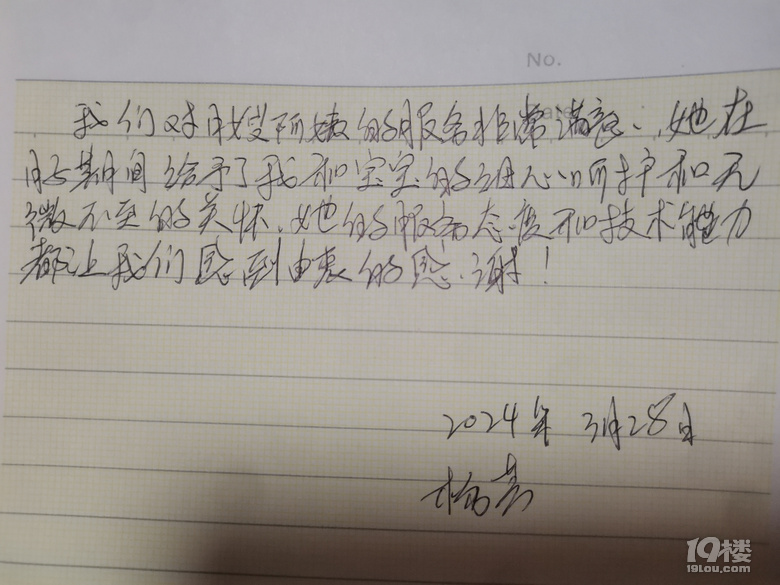 No.
我们对月嫂阿嫂的服务非常满意、她在
月子期间给予了我和宝宝的细心呵护和无
微不至的关怀、她的服务态度和技术能力
都让我们感到由衷的感谢！
2024年 3月28日
杨
19楼
19lou.com